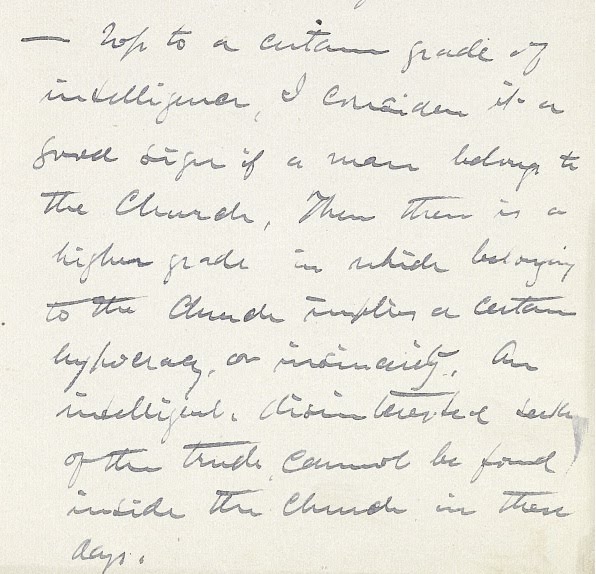 — Up to a certain grade of
intelligence, I consider it a
good sign if a man belongs to
the Church. Then there is a
higher grade in which belonging
to the Church implies a certain
hypocracy, or insincerity. An
intelligent, disinterested seeker
of the truth, cannot be found
inside the Church in these
days.